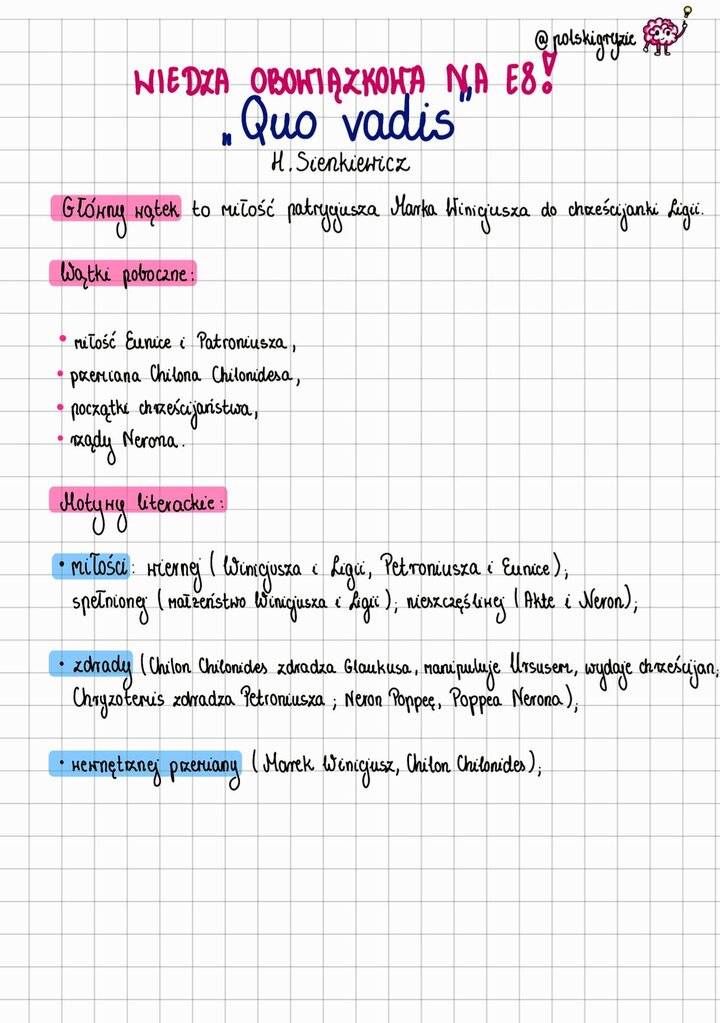 @polskigryzie
WIEDZA OBOWIĄZKOWA NA E8!
„Quo vadis"
H. Sienkiewicz
Główny wątek to miłość patrycjusza Marka Winicjusza do chrześcijanki Ligii.
Wątki poboczne:
• miłość Eunice i Patroniusza,
• przemiana Chilona Chilonidesa,
• początki chrześcijaństwa,
• rządy Nerona.
Motywy literackie:
• miłości: wiernej (Winicjusza i Ligii, Petroniusza i Eunice);
spełnionej (małżeństwo Winicjusza i Ligii); nieszczęśliwej (Akte i Neron);
• zdrady (Chilon Chilonides zdradza Glaukusa, manipuluje Ursusem, wydaje chrześcijan;
Chryzotemis zdradza Petroniusza; Neron Poppeę, Poppea Nerona);
• wewnętrznej przemiany (Marek Winicjusz, Chilon Chilonides);